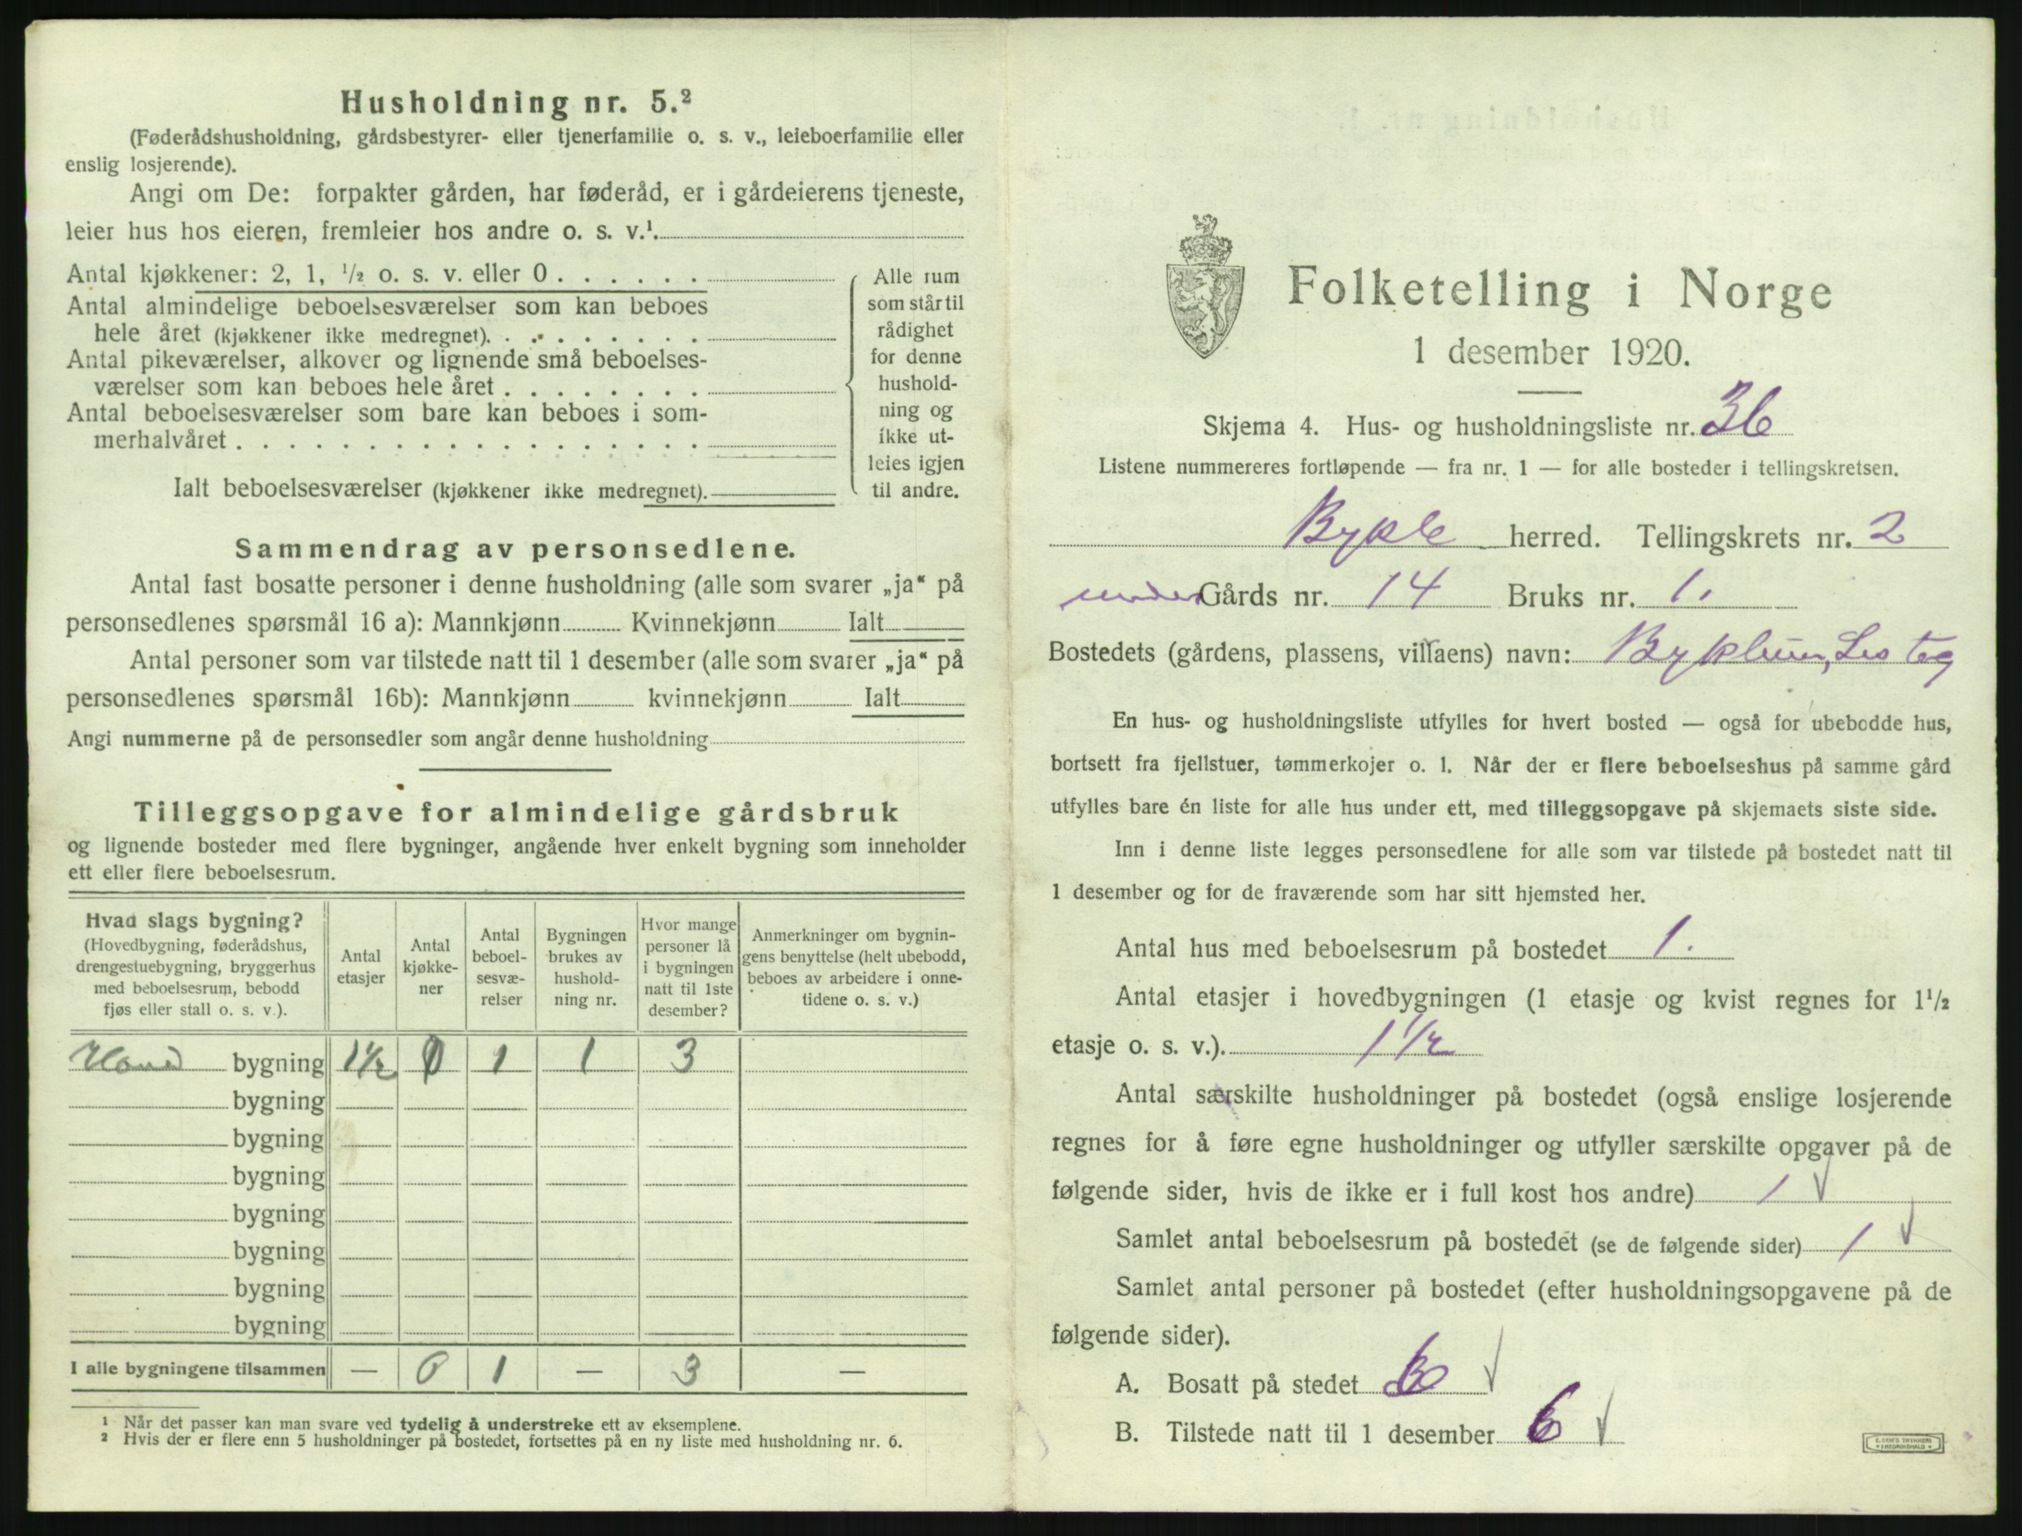 Husholdning nr. 5.²
(Føderådshusholdning, gårdsbestyrer- eller tjenerfamilie o. s. v., leieboerfamilie eller
enslig losjerende).
Angi om De: forpakter gården, har føderåd, er i gårdeierens tjeneste,
leier hus hos eieren, fremleier hos andre o. s. v.¹
Antal kjøkkener: 2, 1, ½ o. s. v. eller 0 . . . . . .
Antal almindelige beboelsesværelser som kan beboes
hele året (kjøkkener ikke medregnet). . . . . . . .
Antal pikeværelser, alkover og lignende små beboelses-
værelser som kan beboes hele året . . . . . . . .
Antal beboelsesværelser som bare kan beboes i som-
merhalvåret . . . . . . . . . . . . . . . . . .
Ialt beboelsesværelser (kjøkkener ikke medregnet).
Alle rum
som står til
rådighet
for denne
hushold-
ning og
ikke ut-
leies igjen
til andre.
Sammendrag av personsedlene.
Antal fast bosatte personer i denne husholdning (alle som svarer „ja“ på
personsedlenes spørsmål 16 a): Mannkjønn Kvinnekjønn Ialt
Antal personer som var tilstede natt til 1 desember (alle som svarer „ja“ på
personsedlenes spørsmål 16b): Mannkjønn kvinnekjønn Ialt
Angi nummerne på de personsedler som angår denne husholdning
Tilleggsopgave for almindelige gårdsbruk
og lignende bosteder med flere bygninger, angående hver enkelt bygning som inneholder
ett eller flere beboelsesrum.
Hvad slags bygning?
(Hovedbygning, føderådshus,
drengestuebygning, bryggerhus
med beboelsesrum, bebodd
fjøs eller stall o. s. v.).
Antal
etasjer
Antal
kjøkke-
ner
Antal
beboel-
sesvæ-
relser
Bygningen
brukes av
hushold-
ning nr.
Hvor mange
personer lå
i bygningen
natt til 1ste
desember?
Anmerkninger om bygnin-
gens benyttelse (helt ubebodd,
beboes av arbeidere i onne-
tidene o. s. v.)
bygning 1½ 0 1 1 3
bygning
bygning
bygning
bygning
bygning
bygning
bygning
I alle bygningene tilsammen — 0 1 — 3 —
¹ Når det passer kan man svare ved tydelig å understreke ett av eksemplene.
² Hvis der er flere enn 5 husholdninger på bostedet, fortsettes på en ny liste med husholdning nr. 6.
Folketelling i Norge
1 desember 1920.
Skjema 4. Hus- og husholdningsliste nr. 36
Listene nummereres fortløpende — fra nr. 1 — for alle bosteder i tellingskretsen.
Bykle herred. Tellingskrets nr. 2
under Gårds nr. 14 Bruks nr. 1.
Bostedets (gårdens, plassens, villaens) navn: Byklum,
En hus- og husholdningsliste utfylles for hvert bosted — også for ubebodde hus,
bortsett fra fjellstuer, tømmerkojer o. l. Når der er flere beboelseshus på samme gård
utfylles bare én liste for alle hus under ett, med tilleggsopgave på skjemaets siste side.
Inn i denne liste legges personsedlene for alle som var tilstede på bostedet natt til
1 desember og for de fraværende som har sitt hjemsted her.
Antal hus med beboelsesrum på bostedet 1.
Antal etasjer i hovedbygningen (1 etasje og kvist regnes for 1½
etasje o. s. v.). 1½
Antal særskilte husholdninger på bostedet (også enslige losjerende
regnes for å føre egne husholdninger og utfyller særskilte opgaver på de
følgende sider, hvis de ikke er i full kost hos andre) 1 √
Samlet antal beboelsesrum på bostedet (se de følgende sider) 1 √
Samlet antal personer på bostedet (efter husholdningsopgavene på de
følgende sider).
A. Bosatt på stedet 6 √
B. Tilstede natt til 1 desember 6 √